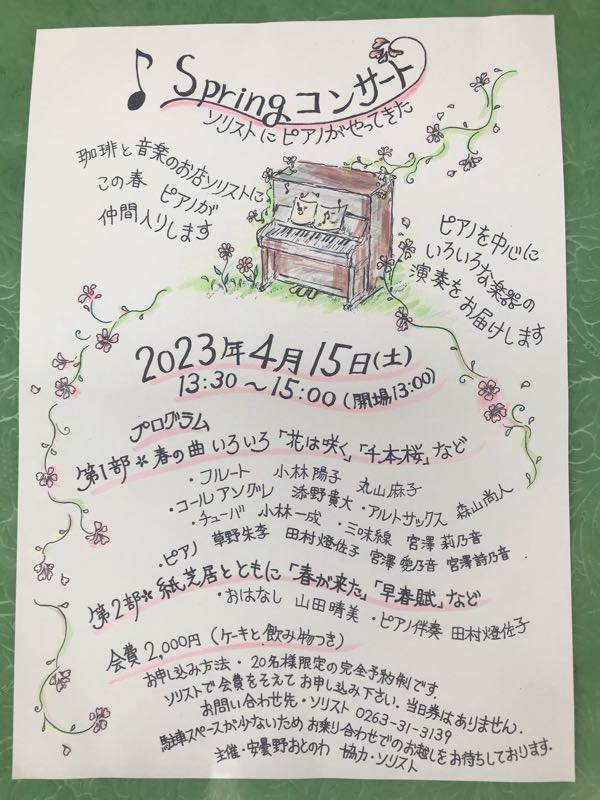 Springコンサート
ソリストにピアノがやってきた
珈琲と音楽のお店ソリストに
この春 ピアノが
仲間入りします
ピアノを中心に
いろいろな楽器の
演奏をお届けします
2023年4月15日(土)
13:30〜15:00(開場13:00)
プログラム
第1部*春の曲いろいろ「花は咲く」「千本桜」など
・フルート 小林陽子 丸山麻子
・コールアングレ 添野貴大・アルトサックス 森山尚人
・チューバ 小林一成・三味線 宮澤莉乃音
・ピアノ 草野朱李 田村燈佐子 宮澤愛乃音 宮澤詩乃音
第2部*紙芝居とともに「春が来た」「早春賦」など
・おはなし 山田晴美・ピアノ伴奏 田村燈佐子
会費2,000円(ケーキと飲み物つき)
お申し込み方法・20名様限定の完全予約制です。
ソリストで会費をそえてお申し込み下さい。当日券はありません。
お問い合わせ先・ソリスト 0263-31-3139
駐車スペースが少ないためお乗り合わせでのお越しをお待ちしております。
主催・安曇野おとのわ 協力・ソリスト